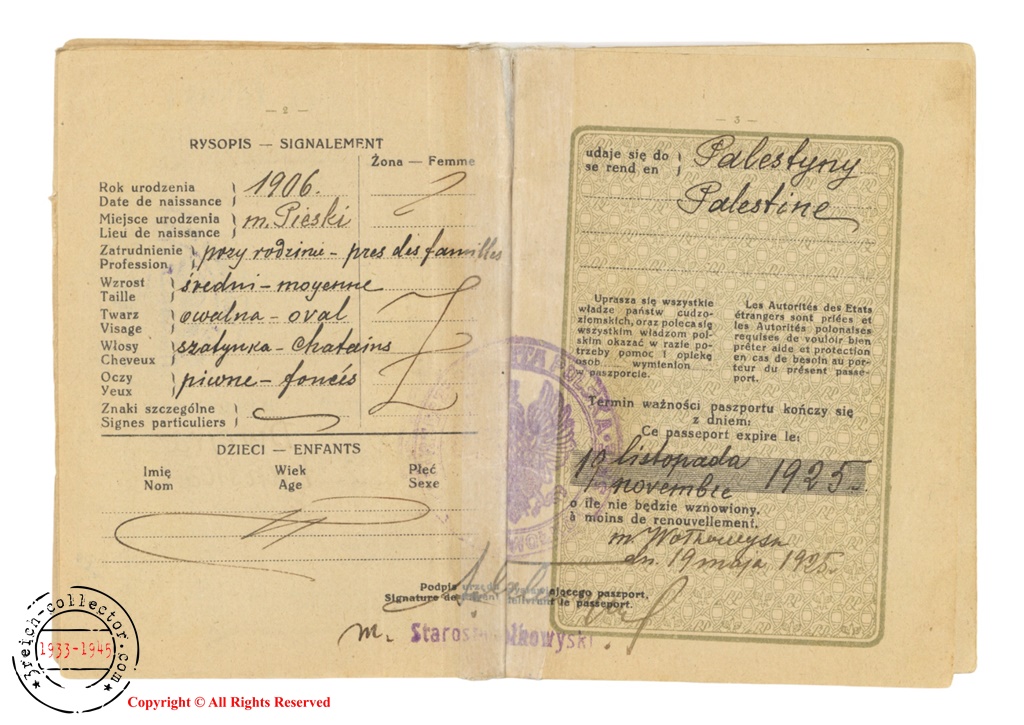 — 2 —
RYSOPIS — SIGNALEMENT
Żona — Femme
Rok urodzenia
Date de naissance
1906.
Miejsce urodzenia
Lieu de naissance
m. Pieski
Zatrudnienie
Profession
przy rodzinie - pres des familles
Wzrost
Taille
średni - moyenne
Twarz
Visage
owalna - oval
Włosy
Cheveux
szatynka - Chatains
Oczy
Yeux
piwne - foncés
Znaki szczególne
Signes particuliers
DZIECI — ENFANTS
Imię Wiek Płeć
Nom Age Sexe
— 3 —
udaje się do
se rend en
Palestyny
Palestine
Uprasza się wszystkie
władze państw cudzo-
ziemskich, oraz poleca się
wszystkim władzom pol-
skim okazać w razie po-
trzeby pomoc i opiekę
osob..... wymienion
w paszporcie.
Les Autorités des Etats
étrangers sont priées et
les Autorités polonaises
requises de vouloir bien
prêter aide et protection
en cas de besoin au por-
teur du présent passe-
port.
Termin ważności paszportu kończy się
z dniem:
Ce passeport expire le:
19 listopada
novembre 1925
o ile nie będzie wznowiony.
à moins de renouvellement.
m. Wołkowysk
dn. 19 maja 1925.
Podpis paszport,
Signature le passeport.
m. Staros lkowyski
3reich-collector.com
1933-1945
Copyright © All Rights Reserved